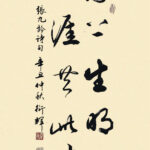 上生明
涯共此
張九齡詩句 辛丑仲秋